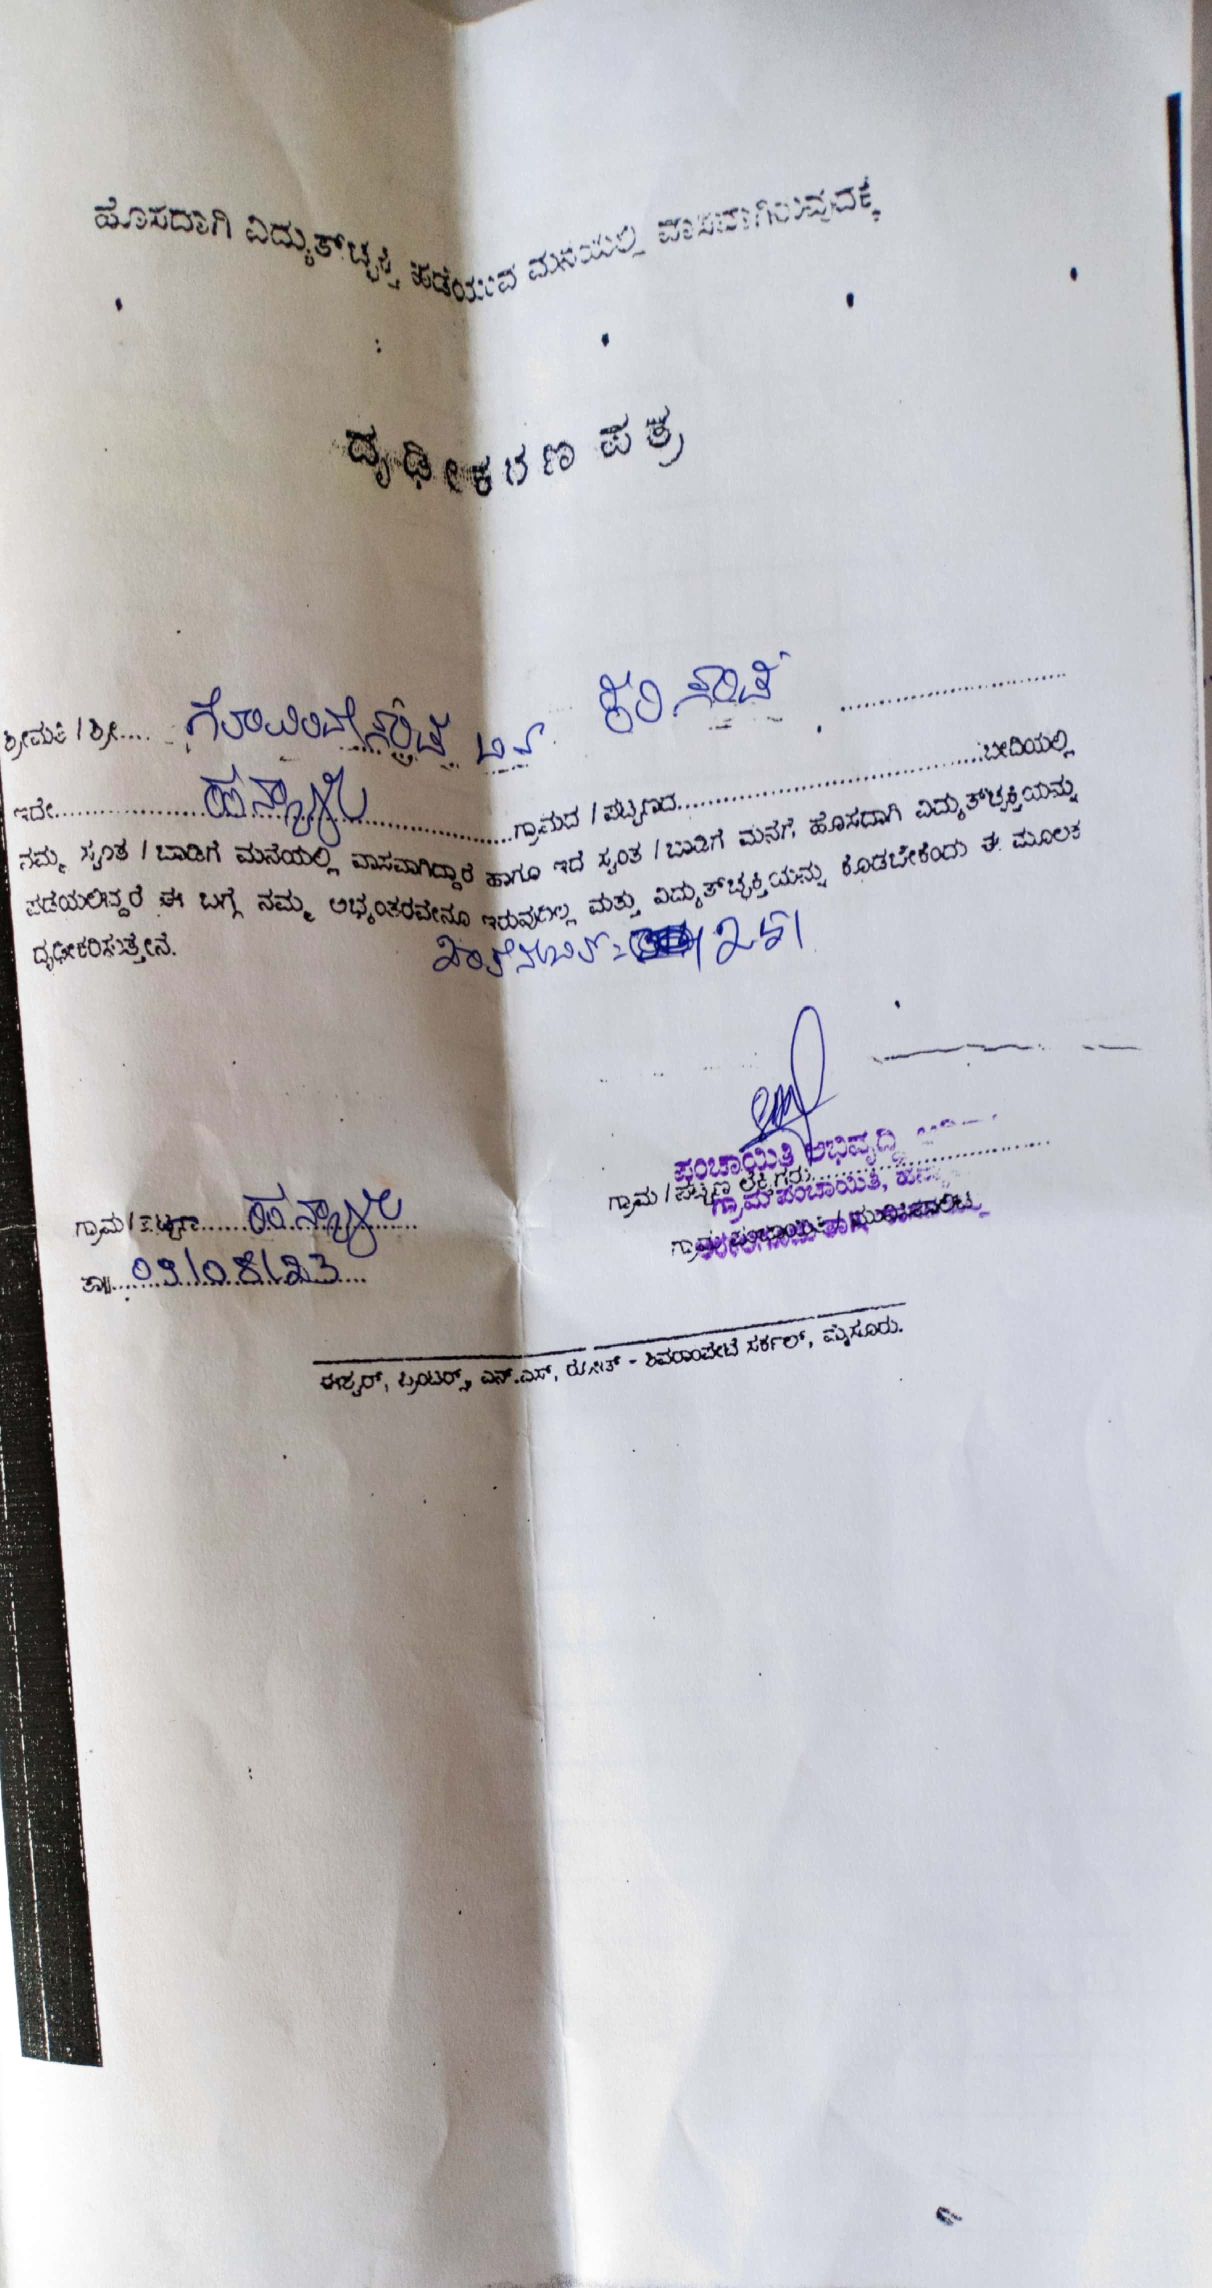 ಹೊಸದಾಗಿ ವಿದ್ಯುತ್‌ಚ್ಛಕ್ತಿ ಪಡೆಯುವ ಮನೆಯಲ್ಲಿ ವಾಸವಾಗಿರುವುದಕ್ಕೆ
ದೃಢೀಕರಣ ಪತ್ರ
ಶ್ರೀಮತಿ / ಶ್ರೀ.... ಬಿನ್
ಇದೇ.................... ಹನ್ಯಾಳು ....................ಗ್ರಾಮದ / ಪಟ್ಟಣದ........................................ಬೀದಿಯಲ್ಲಿ
ನಮ್ಮ ಸ್ವಂತ / ಬಾಡಿಗೆ ಮನೆಯಲ್ಲಿ ವಾಸವಾಗಿದ್ದಾರೆ ಹಾಗೂ ಇದೆ ಸ್ವಂತ / ಬಾಡಿಗೆ ಮನೆಗೆ ಹೊಸದಾಗಿ ವಿದ್ಯುತ್‌ಚ್ಛಕ್ತಿಯನ್ನು
ಪಡೆಯಲಿದ್ದರೆ ಈ ಬಗ್ಗೆ ನಮ್ಮ ಅಭ್ಯಂತರವೇನೂ ಇರುವುದಿಲ್ಲ ಮತ್ತು ವಿದ್ಯುತ್‌ಚ್ಛಕ್ತಿಯನ್ನು ಕೊಡಬೇಕೆಂದು ಈ ಮೂಲಕ
ದೃಢೀಕರಿಸುತ್ತೇನೆ.
251
ಪಂಚಾಯಿತಿ ಅಭಿವೃದ್ಧಿ
ಗ್ರಾಮ / ಪಟ್ಟಣ ಲೆಕ್ಕಿಗರು........................
ಗ್ರಾಮ ಪಂಚಾಯಿತಿ,
ಗ್ರಾಮ / ಪಟ್ಟಣ....... ಹನ್ಯಾಳು
ತಾ॥ 09/08/23
ಈಶ್ವರ್, ಪ್ರಿಂಟರ್ಸ್, ಎನ್.ಎಸ್, ರಸ್ತೆ - ಶಿವರಾಂಪೇಟೆ ಸರ್ಕಲ್, ಮೈಸೂರು.